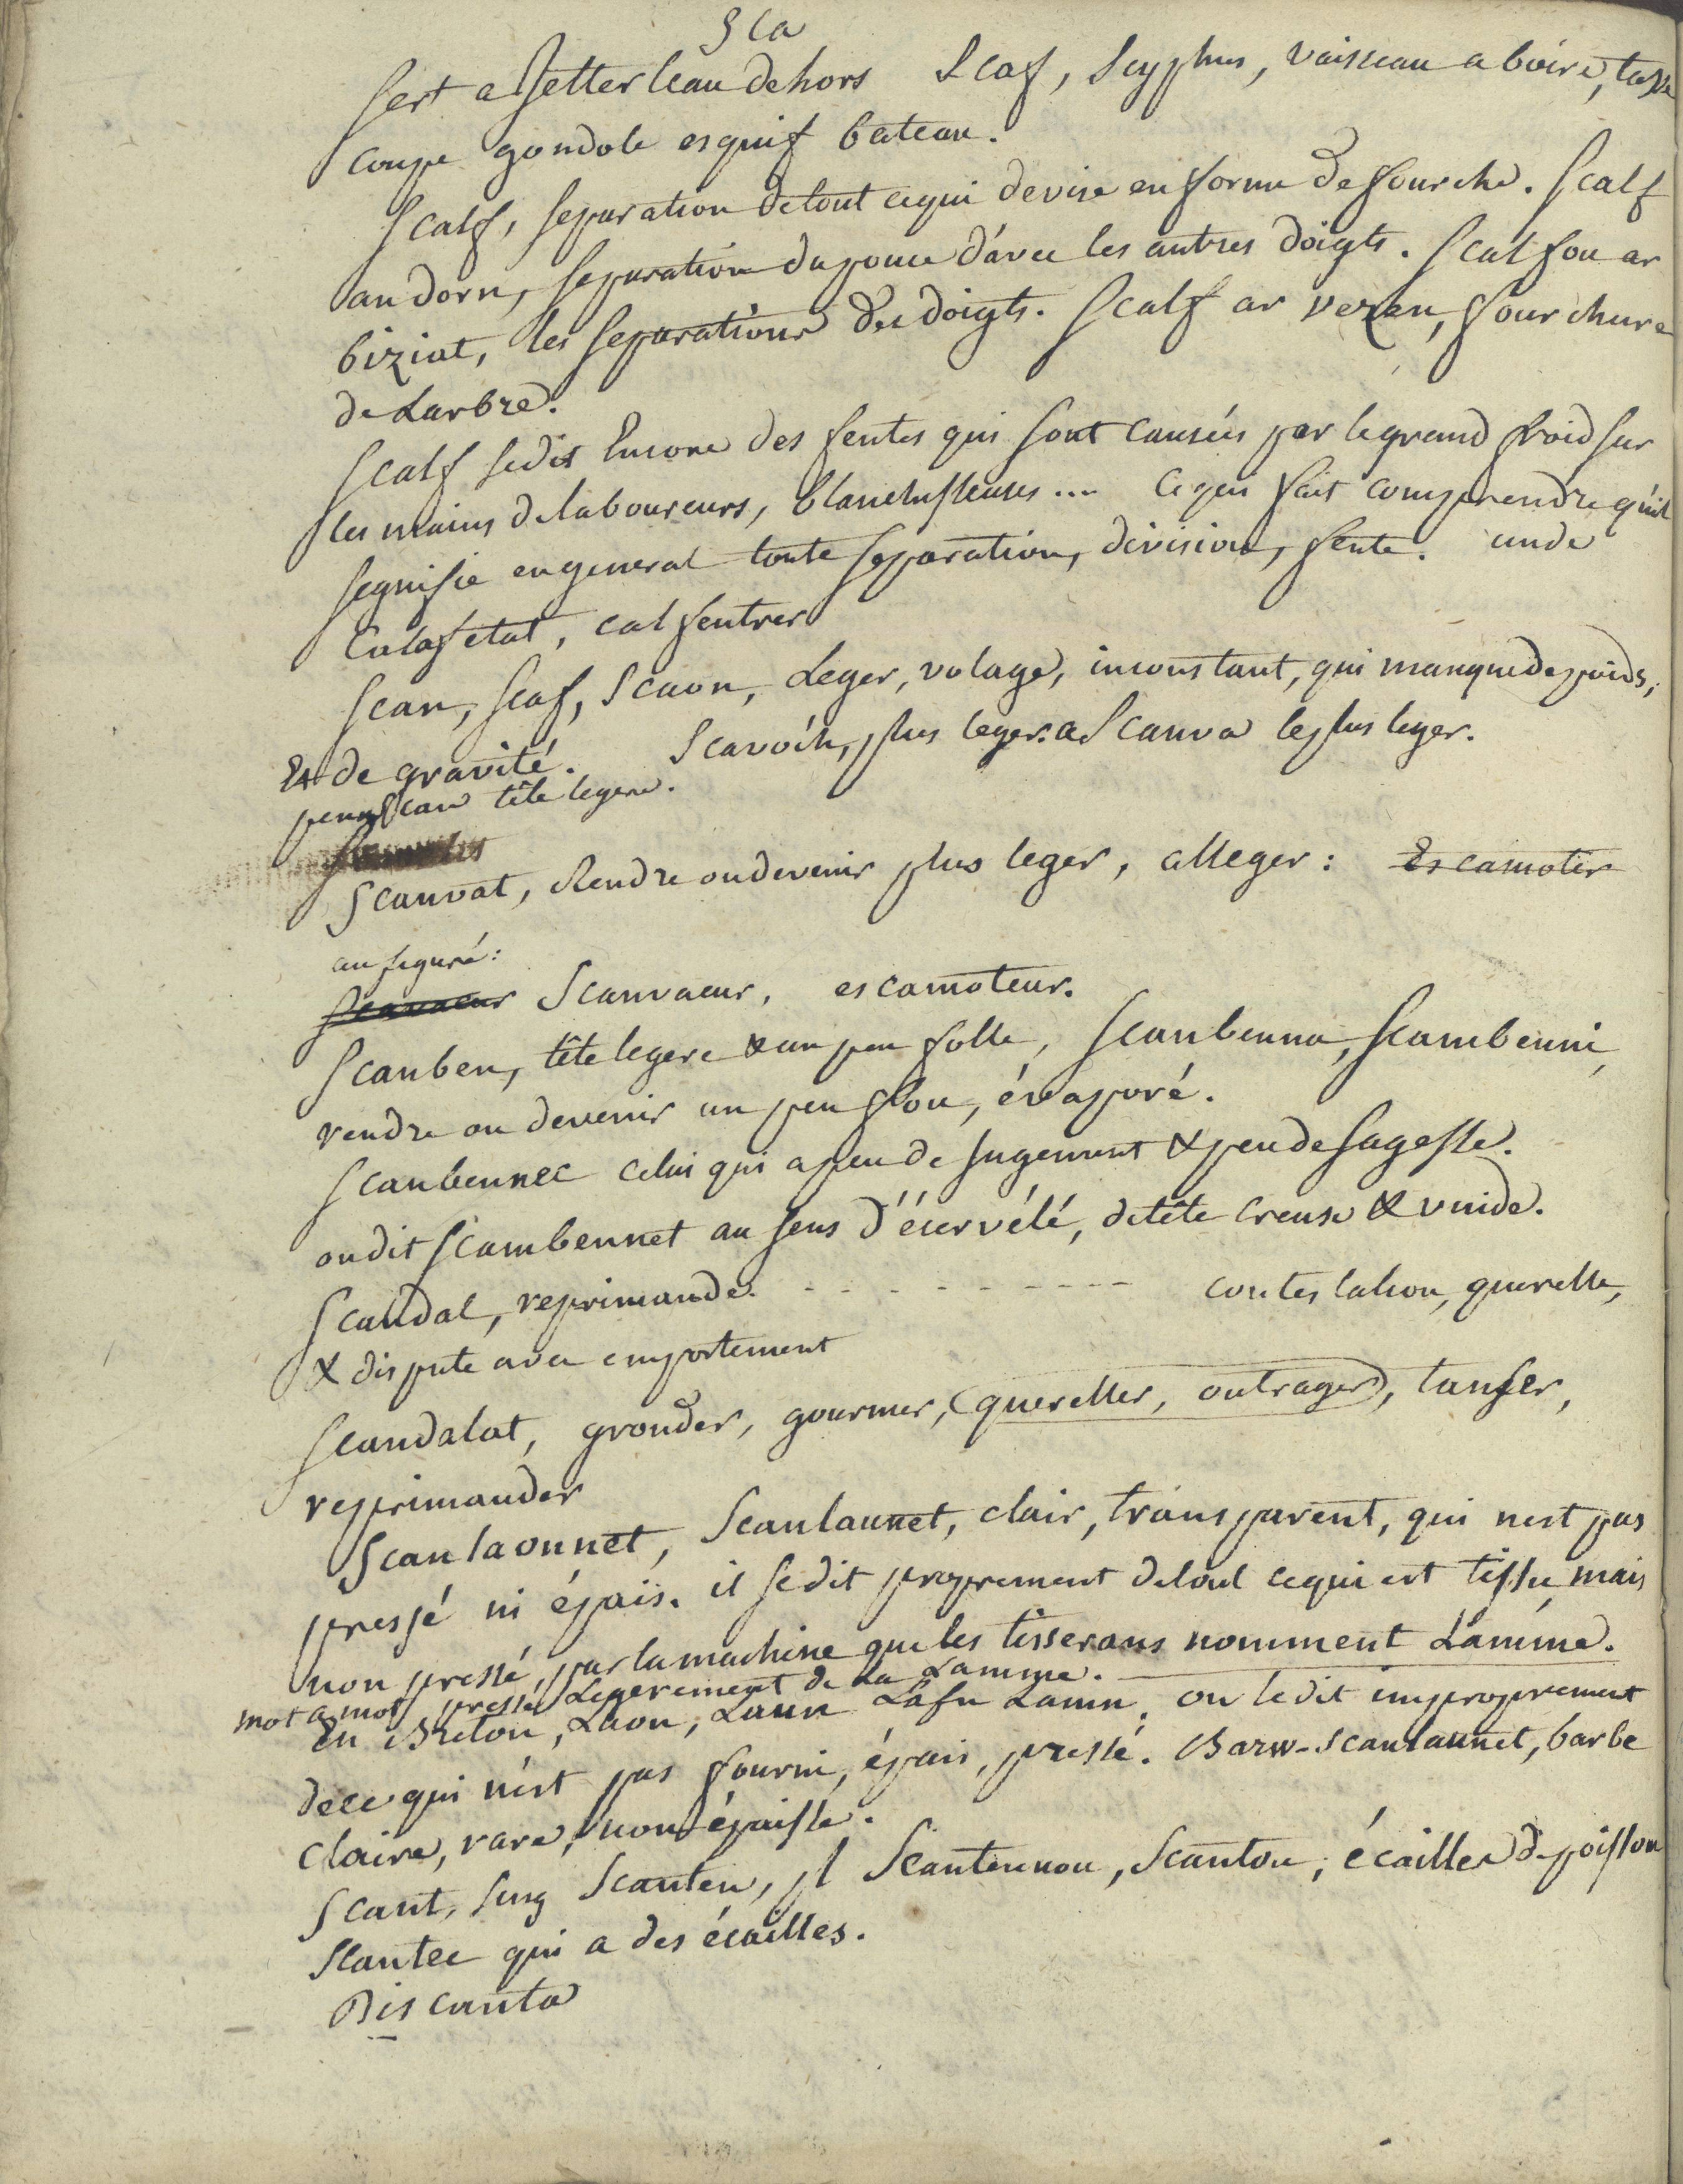 Sca
sert a Jetter leau dehors Scaf, Scyphus, vaisseau a boire, tasse
coupe gondole esquif bateau.
Scalf, separation detout cequi devise en forme de fourche. Scalf
an dorn, separation dupouce d'avec les autres doigts. Scalfou ar
biziat, les separations des doigts. Scalf ar vezen, fourchure
de Larbre.
Scalf sedit Encore des fentes qui sont causées par legrand froid sur
les mains delaboureurs, blanchisseuses .... cequi fait comprendre quil
segnifie engeneral toute separation, division, fente. unde
Calafetat, calfeutrer
Scan, scaf, Scaon, Leger, volage, inconstant, qui manquedepoids,
Et de gravité. Scavoc'h, plus leger. a Scanva leplus leger.
penn Scan tête legere.
Scanvat, Rendre oudevenir plus leger, alleger : Escamoter
au figuré :
Scanvaeur Scanvaeur, escamoteur.
Scanben, tête legere & un peu folle, Scanbenna, Scambenni,
rendre ou devenir un peu flou, évaporé.
Scanbennec celui qui apeu de Jugement & peu de sagesse.
ondit Scambennet au sens d'écervélé, detête creuse & vuide.
Scandal, reprimande. - - - - - - - - - contestation, querelle,
& dispute avec emportement
Scandalat, gronder, gourmer, (quereller, outrager), tanser,
reprimander
Scanlaonnet, Scanlaunet, clair, transparent, qui nest pas
pressé ni épais. il sedit proprement detout cequi est tissu, mais
non pressé, par la machine que les tisserans nomment Lamme.
mot a mot pressé Legerement de La Lamme.
En Breton, Laon, Laun Lafn Lamn. on ledit improprement
dece qui n'est pas fourni, épais, pressé. Barw-scanlaunet, barbe
claire, rare, non épaisse.
Scant, sing Scanten, pl Scantennou, Scantou, écailles depoisson
Scantec qui a des écailles.
Discanta